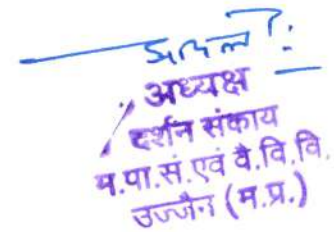 अध्यक्ष
दर्शन संकाय
म.पा.सं.एवं वै.वि.वि.
उज्जैन (म.प्र.)